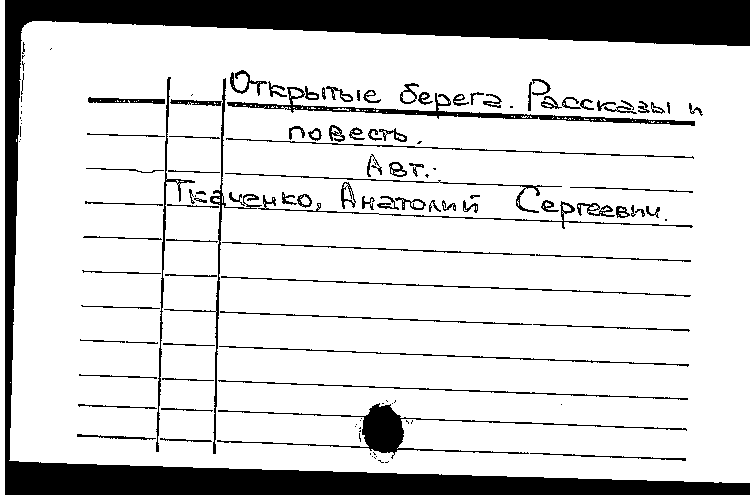 Открытые берега. Рассказы и
повесть.
Авт.:
Ткаченко, Анатолий Сергеевич.